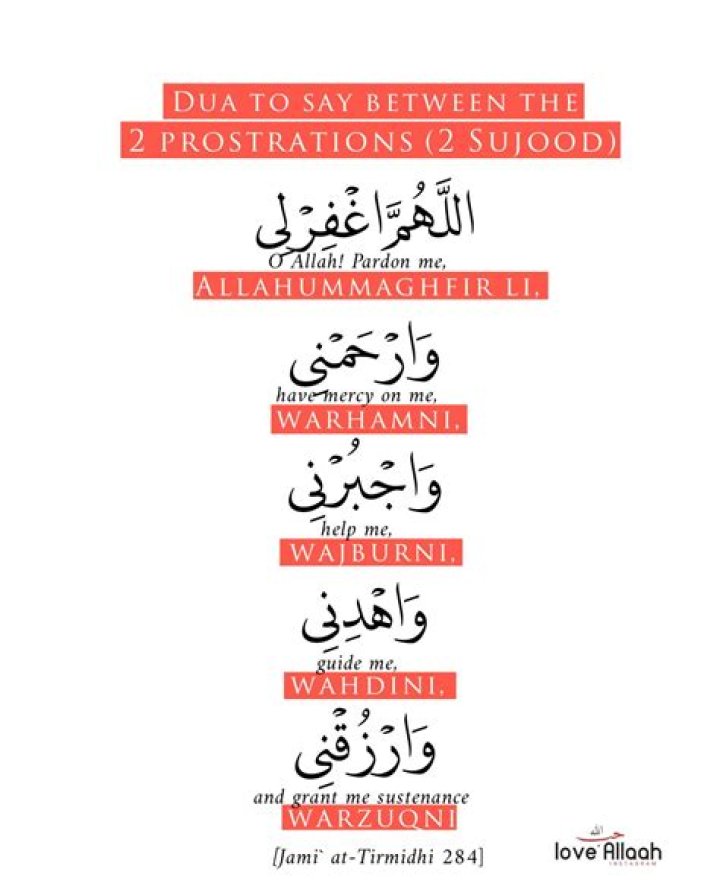 DUA TO SAY BETWEEN THE
2 PROSTRATIONS (2 SUJOOD)
اللَّهُمَّ اغْفِرْ لِي
O Allah! Pardon me,
ALLAHUMMAGHFIR LI,
وَارْحَمْنِي
have mercy on me,
WARHAMNI,
وَاجْبُرْنِي
help me,
WAJBURNI,
وَاهْدِنِي
guide me,
WAHDINI,
وَارْزُقْنِي
and grant me sustenance
WARZUQNI
[Jami` at-Tirmidhi 284]
حب الله
love Allaah
INSTAGRAM